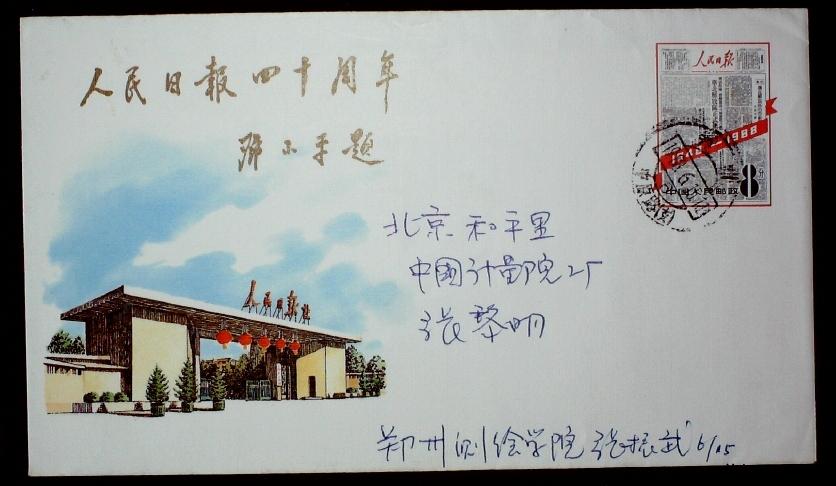 人民日报四十周年
邓小平题
人民日报
1948—1988
中国人民邮政
8分
北京和平里
中國计量院二厂
张黎明
人民日报社
郑州测绘学院 张振武 6/05